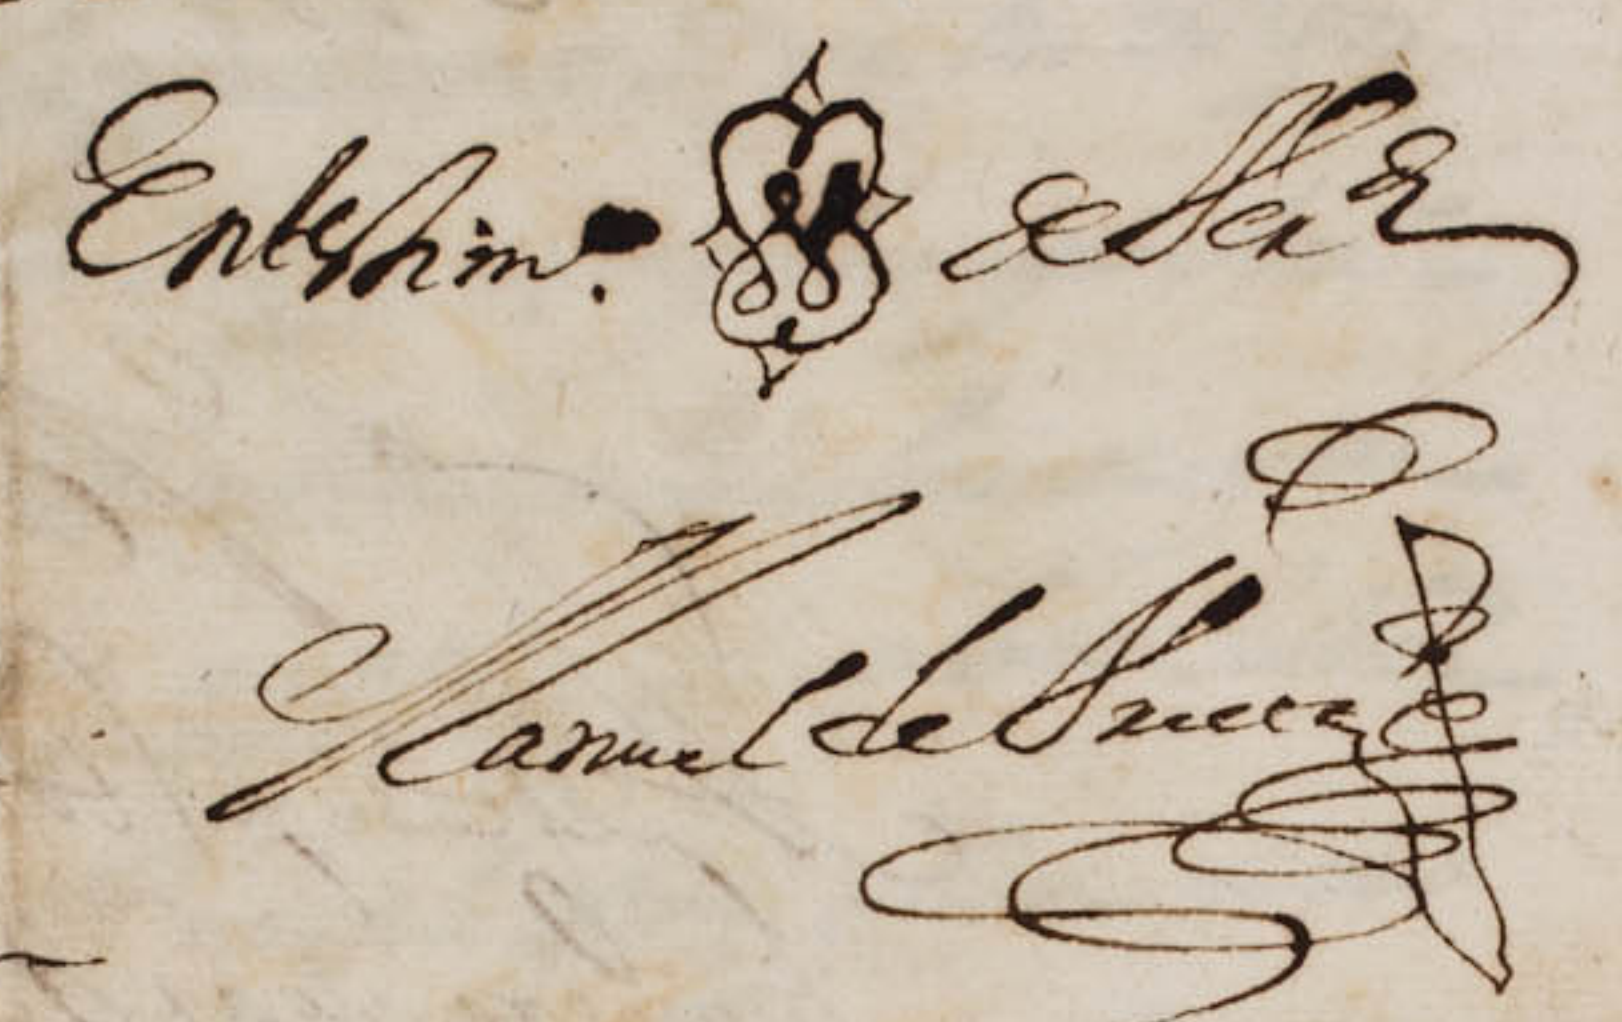 En testim.o de Ver.d
Manuel de